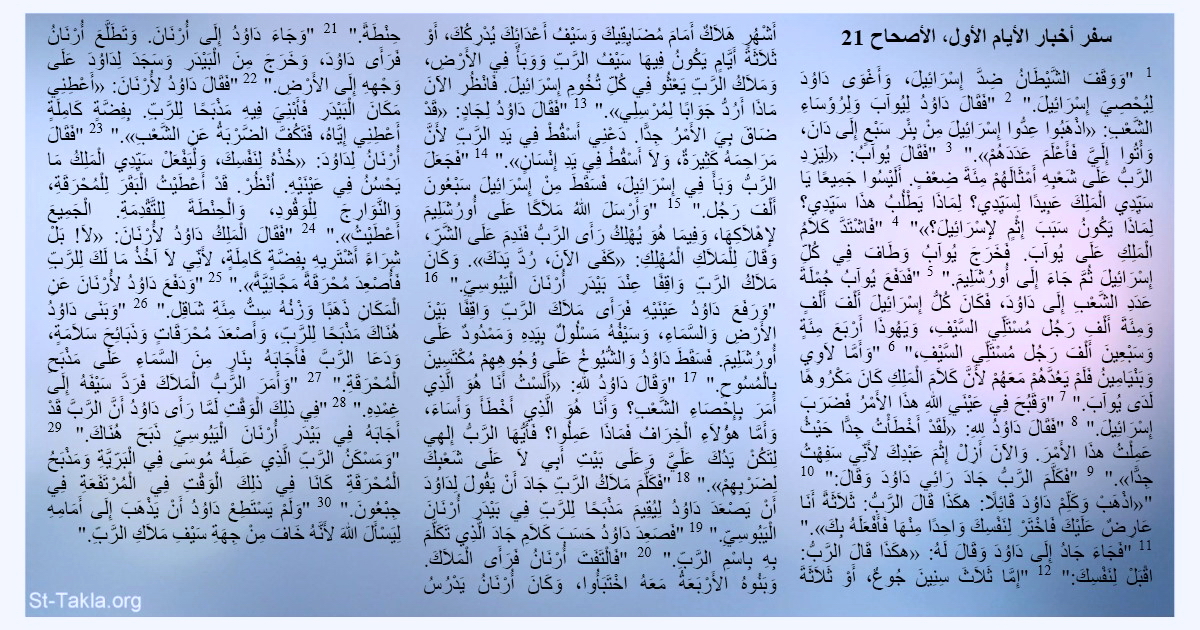 سفر أخبار الأيام الأول، الأصحاح 21
1 "وَوَقَفَ الشَّيْطَانُ ضِدَّ إِسْرَائِيلَ، وَأَغْوَى دَاوُدَ
لِيُحْصِيَ إِسْرَائِيلَ." 2 "فَقَالَ دَاوُدُ لِيُوآبَ وَلِرُؤَسَاءِ
الشَّعْبِ: «اذْهَبُوا عِدُّوا إِسْرَائِيلَ مِنْ بِئْرِ سَبْعٍ إِلَى دَانَ،
وَأْتُوا إِلَيَّ فَأَعْلَمَ عَدَدَهُمْ»." 3 "فَقَالَ يُوآبُ: «لِيَزِدِ
الرَّبُّ عَلَى شَعْبِهِ أَمْثَالَهُمْ مِئَةَ ضِعْفٍ. أَلَيْسُوا جَمِيعًا يَا
سَيِّدِي الْمَلِكَ عَبِيدًا لِسَيِّدِي؟ لِمَاذَا يَطْلُبُ هذَا سَيِّدِي؟
لِمَاذَا يَكُونُ سَبَبَ إِثْمٍ لإِسْرَائِيلَ؟»" 4 "فَاشْتَدَّ كَلاَمُ
الْمَلِكِ عَلَى يُوآبَ. فَخَرَجَ يُوآبُ وَطَافَ فِي كُلِّ
إِسْرَائِيلَ ثُمَّ جَاءَ إِلَى أُورُشَلِيمَ." 5 "فَدَفَعَ يُوآبُ جُمْلَةَ
عَدَدِ الشَّعْبِ إِلَى دَاوُدَ، فَكَانَ كُلُّ إِسْرَائِيلَ أَلْفَ أَلْفٍ
وَمِئَةَ أَلْفِ رَجُل مُسْتَلِّي السَّيْفِ، وَيَهُوذَا أَرْبَعَ مِئَةٍ
وَسَبْعِينَ أَلْفَ رَجُل مُسْتَلِّي السَّيْفِ،" 6 "وَأَمَّا لاَوِي
وَبَنْيَامِينُ فَلَمْ يَعُدَّهُمْ مَعَهُمْ لأَنَّ كَلاَمَ الْمَلِكِ كَانَ مَكْرُوهًا
لَدَى يُوآبَ." 7 "وَقَبُحَ فِي عَيْنَيِ اللهِ هذَا الأَمْرُ فَضَرَبَ
إِسْرَائِيلَ." 8 "فَقَالَ دَاوُدُ للهِ: «لَقَدْ أَخْطَأْتُ جِدًّا حَيْثُ
عَمِلْتُ هذَا الأَمْرَ. وَالآنَ أَزِلْ إِثْمَ عَبْدِكَ لأَنِّي سَفِهْتُ
جِدًّا»." 9 "فَكَلَّمَ الرَّبُّ جَادَ رَائِي دَاوُدَ وَقَالَ:" 10
"«اذْهَبْ وَكَلِّمْ دَاوُدَ قَائِلاً: هكَذَا قَالَ الرَّبُّ: ثَلاَثَةً أَنَا
عَارِضٌ عَلَيْكَ فَاخْتَرْ لِنَفْسِكَ وَاحِدًا مِنْهَا فَأَفْعَلَهُ بِكَ»."
11 "فَجَاءَ جَادُ إِلَى دَاوُدَ وَقَالَ لَهُ: «هكَذَا قَالَ الرَّبُّ:
اقْبَلْ لِنَفْسِكَ:" 12 "إِمَّا ثَلاَثَ سِنِينَ جُوعٌ، أَوْ ثَلاَثَةَ
أَشْهُرٍ هَلاَكٌ أَمَامَ مُضَايِقِيكَ وَسَيْفُ أَعْدَائِكَ يُدْرِكُكَ، أَوْ
ثَلاَثَةَ أَيَّامٍ يَكُونُ فِيهَا سَيْفُ الرَّبِّ وَوَبَأٌ فِي الأَرْضِ،
وَمَلاَكُ الرَّبِّ يَعْثُو فِي كُلِّ تُخُومِ إِسْرَائِيلَ. فَانْظُرِ الآنَ
مَاذَا أَرُدُّ جَوَابًا لِمُرْسِلِي»." 13 "فَقَالَ دَاوُدُ لِجَادٍ: «قَدْ
ضَاقَ بِيَ الأَمْرُ جِدًّا. دَعْنِي أَسْقُطْ فِي يَدِ الرَّبِّ لأَنَّ
مَرَاحِمَهُ كَثِيرَةٌ، وَلاَ أَسْقُطُ فِي يَدِ إِنْسَانٍ»." 14 "فَجَعَلَ
الرَّبُّ وَبَأً فِي إِسْرَائِيلَ، فَسَقَطَ مِنْ إِسْرَائِيلَ سَبْعُونَ
أَلْفَ رَجُل." 15 "وَأَرْسَلَ اللهُ مَلاَكًا عَلَى أُورُشَلِيمَ
لإِهْلاَكِهَا، وَفِيمَا هُوَ يُهْلِكُ رَأَى الرَّبُّ فَنَدِمَ عَلَى الشَّرِّ،
وَقَالَ لِلْمَلاَكِ الْمُهْلِكِ: «كَفَى الآنَ، رُدَّ يَدَكَ». وَكَانَ
مَلاَكُ الرَّبِّ وَاقِفًا عِنْدَ بَيْدَرِ أُرْنَانَ الْيَبُوسِيِّ." 16
"وَرَفَعَ دَاوُدُ عَيْنَيْهِ فَرَأَى مَلاَكَ الرَّبِّ وَاقِفًا بَيْنَ
الأَرْضِ وَالسَّمَاءِ، وَسَيْفُهُ مَسْلُولٌ بِيَدِهِ وَمَمْدُودٌ عَلَى
أُورُشَلِيمَ. فَسَقَطَ دَاوُدُ وَالشُّيُوخُ عَلَى وُجُوهِهِمْ مُكْتَسِينَ
بِالْمُسُوحِ." 17 "وَقَالَ دَاوُدُ للهِ: «أَلَسْتُ أَنَا هُوَ الَّذِي
أَمَرَ بِإِحْصَاءِ الشَّعْبِ؟ وَأَنَا هُوَ الَّذِي أَخْطَأَ وَأَسَاءَ،
وَأَمَّا هؤُلاَءِ الْخِرَافُ فَمَاذَا عَمِلُوا؟ فَأَيُّهَا الرَّبُّ إِلهِي
لِتَكُنْ يَدُكَ عَلَيَّ وَعَلَى بَيْتِ أَبِي لاَ عَلَى شَعْبِكَ
لِضَرْبِهِمْ»." 18 "فَكَلَّمَ مَلاَكُ الرَّبِّ جَادَ أَنْ يَقُولَ لِدَاوُدَ
أَنْ يَصْعَدَ دَاوُدُ لِيُقِيمَ مَذْبَحًا لِلرَّبِّ فِي بَيْدَرِ أُرْنَانَ
الْيَبُوسِيِّ." 19 "فَصَعِدَ دَاوُدُ حَسَبَ كَلاَمِ جَادَ الَّذِي تَكَلَّمَ
بِهِ بِاسْمِ الرَّبِّ." 20 "فَالْتَفَتَ أُرْنَانُ فَرَأَى الْمَلاَكَ.
وَبَنُوهُ الأَرْبَعَةُ مَعَهُ اخْتَبَأُوا، وَكَانَ أُرْنَانُ يَدْرُسُ
حِنْطَةً." 21 "وَجَاءَ دَاوُدُ إِلَى أُرْنَانَ. وَتَطَلَّعَ أُرْنَانُ
فَرَأَى دَاوُدَ، وَخَرَجَ مِنَ الْبَيْدَرِ وَسَجَدَ لِدَاوُدَ عَلَى
وَجْهِهِ إِلَى الأَرْضِ." 22 "فَقَالَ دَاوُدُ لأُرْنَانَ: «أَعْطِنِي
مَكَانَ الْبَيْدَرِ فَأَبْنِيَ فِيهِ مَذْبَحًا لِلرَّبِّ. بِفِضَّةٍ كَامِلَةٍ
أَعْطِنِي إِيَّاهُ، فَتَكُفَّ الضَّرْبَةُ عَنِ الشَّعْبِ»." 23 "فَقَالَ
أُرْنَانُ لِدَاوُدَ: «خُذْهُ لِنَفْسِكَ، وَلْيَفْعَلْ سَيِّدِي الْمَلِكُ مَا
يَحْسُنُ فِي عَيْنَيْهِ. اُنْظُرْ. قَدْ أَعْطَيْتُ الْبَقَرَ لِلْمُحْرَقَةِ،
وَالنَّوَارِجَ لِلْوَقُودِ، وَالْحِنْطَةَ لِلتَّقْدِمَةِ. الْجَمِيعَ
أَعْطَيْتُ»." 24 "فَقَالَ الْمَلِكُ دَاوُدُ لأُرْنَانَ: «لاَ! بَلْ
شِرَاءً أَشْتَرِيهِ بِفِضَّةٍ كَامِلَةٍ، لأَنِّي لاَ آخُذُ مَا لَكَ لِلرَّبِّ
فَأُصْعِدَ مُحْرَقَةً مَجَّانِيَّةً»." 25 "وَدَفَعَ دَاوُدُ لأُرْنَانَ عَنِ
الْمَكَانِ ذَهَبًا وَزْنُهُ سِتُّ مِئَةِ شَاقِل." 26 "وَبَنَى دَاوُدُ
هُنَاكَ مَذْبَحًا لِلرَّبِّ، وَأَصْعَدَ مُحْرَقَاتٍ وَذَبَائِحَ سَلاَمَةٍ،
وَدَعَا الرَّبَّ فَأَجَابَهُ بِنَارٍ مِنَ السَّمَاءِ عَلَى مَذْبَحِ
الْمُحْرَقَةِ." 27 "وَأَمَرَ الرَّبُّ الْمَلاَكَ فَرَدَّ سَيْفَهُ إِلَى
غِمْدِهِ." 28 "فِي ذلِكَ الْوَقْتِ لَمَّا رَأَى دَاوُدُ أَنَّ الرَّبَّ قَدْ
أَجَابَهُ فِي بَيْدَرِ أُرْنَانَ الْيَبُوسِيِّ ذَبَحَ هُنَاكَ." 29
"وَمَسْكَنُ الرَّبِّ الَّذِي عَمِلَهُ مُوسَى فِي الْبَرِّيَّةِ وَمَذْبَحُ
الْمُحْرَقَةِ كَانَا فِي ذلِكَ الْوَقْتِ فِي الْمُرْتَفَعَةِ فِي
جِبْعُونَ." 30 "وَلَمْ يَسْتَطِعْ دَاوُدُ أَنْ يَذْهَبَ إِلَى أَمَامِهِ
لِيَسْأَلَ اللهَ لأَنَّهُ خَافَ مِنْ جِهَةِ سَيْفِ مَلاَكِ الرَّبِّ."
St-Takla.org